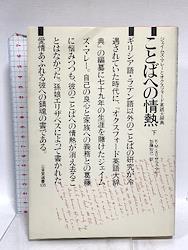 ジェイムズ・マレーとオクスフォード英語大辞典
ことばへの情熱 下
K・M・エリザベス・マレー
加藤知己 訳
ギリシア語・ラテン語以外のことばの研究が冷
遇されていた時代に、『オクスフォード英語大辞
典』の編纂に七十九年の生涯を賭けたジェイム
ズ・マレー。自己の良心と家族への義務との葛藤
に悩みつつも、彼のことばへの情熱が消え去るこ
とはなかった。孫娘エリザベスによって書かれた、
愛情あふれる彼への鎮魂の書である。
三省堂選書